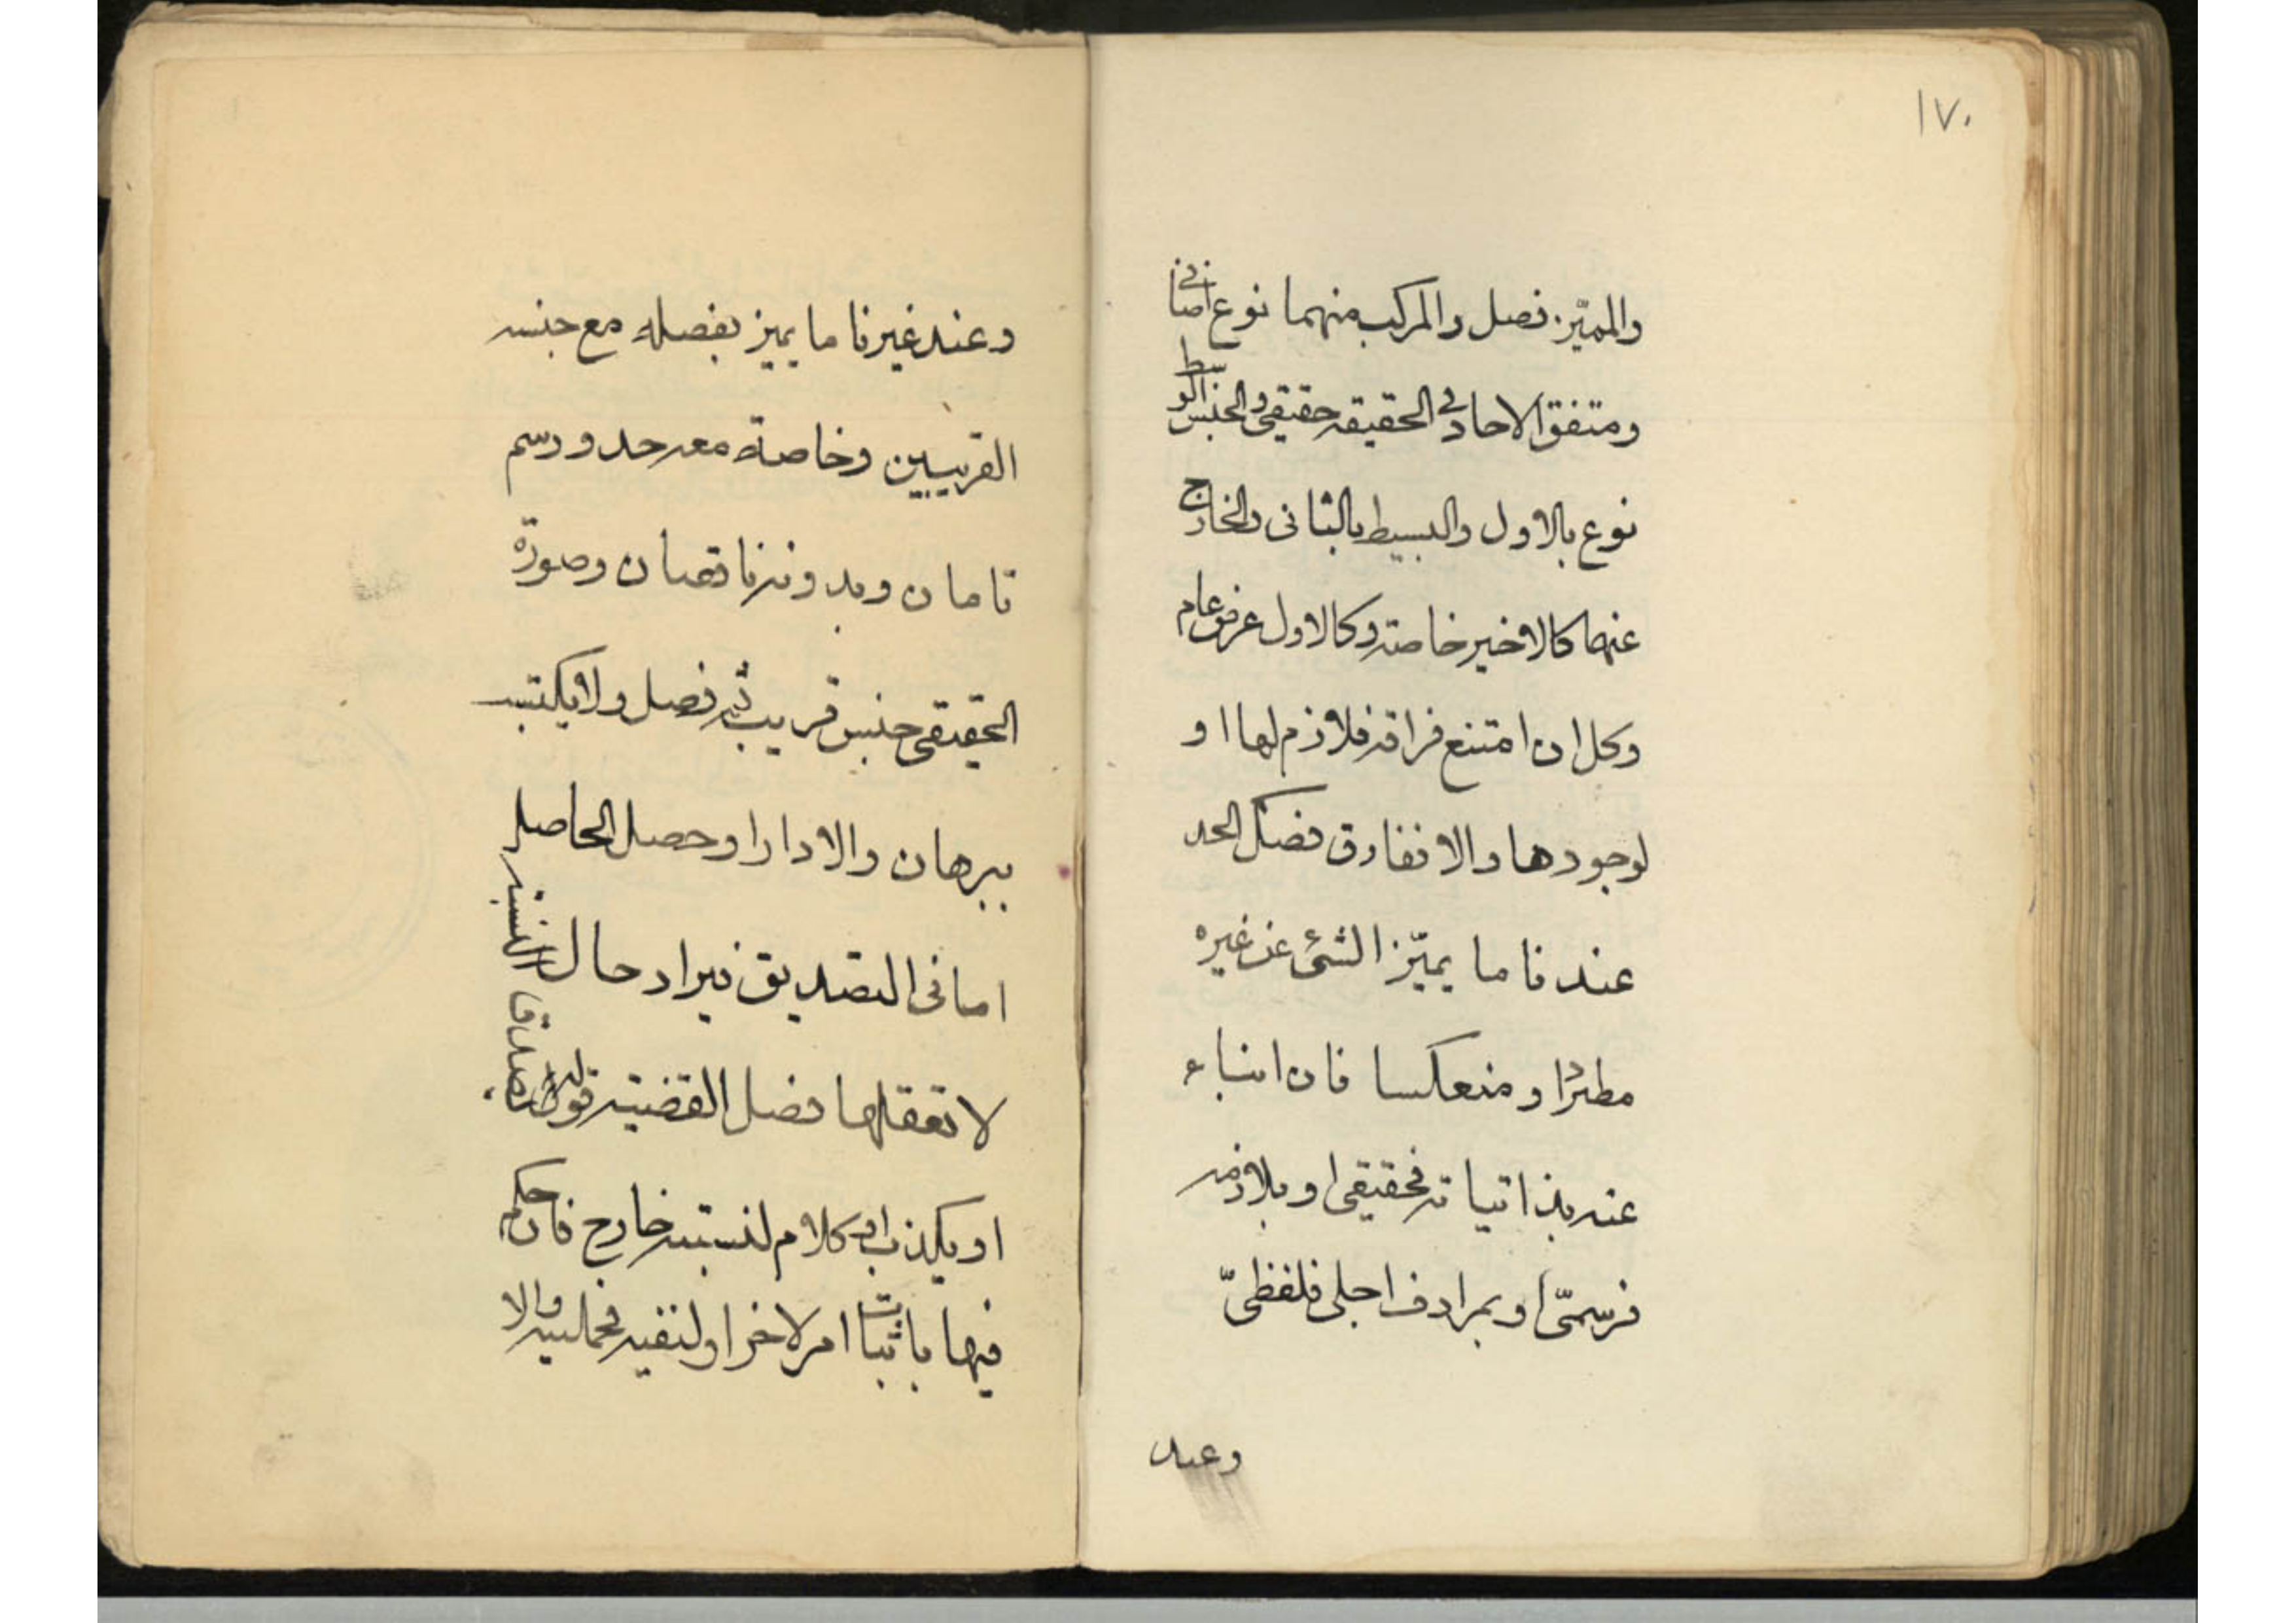 ١٧٠
والمميّز فصل والمركب منهما نوع اضافى
ومتفق الاحاد فى الحقيقة حقيقى والجنس الوسط
نوع بالاول والبسيط بالثانى والخارج
عنها كالاخير خاصة وكالاول عرض عام
وكل ان امتنع فراقه فلازم لها او
لوجودها والا فمفارق فصل الحد
عندنا ما يميّز الشئ عن غيره
مطردًا ومنعكسا فان انباء
عنه بذاتياته فحقيقى او بلازمه
فرسمىّ او بمرادف اجلى فلفظىّ
وعند
وعند غيرنا ما يميز بفصله مع جنسه
القريبين وخاصة معه حد ورسم
تامان وبدونه ناقصان وصورة
الحقيقى جنس قريب ثم فصل ولا يكتسب
ببرهان والا دار او حصل الحاصل
اما فى التصديق فيراد حال النسبة
لا تعقلها فصل القضية قول يصدق
او يكذب او كلام لنسبته خارج فان حكم
فيها باثبات امر لاخر او لنفيه فحملية والا